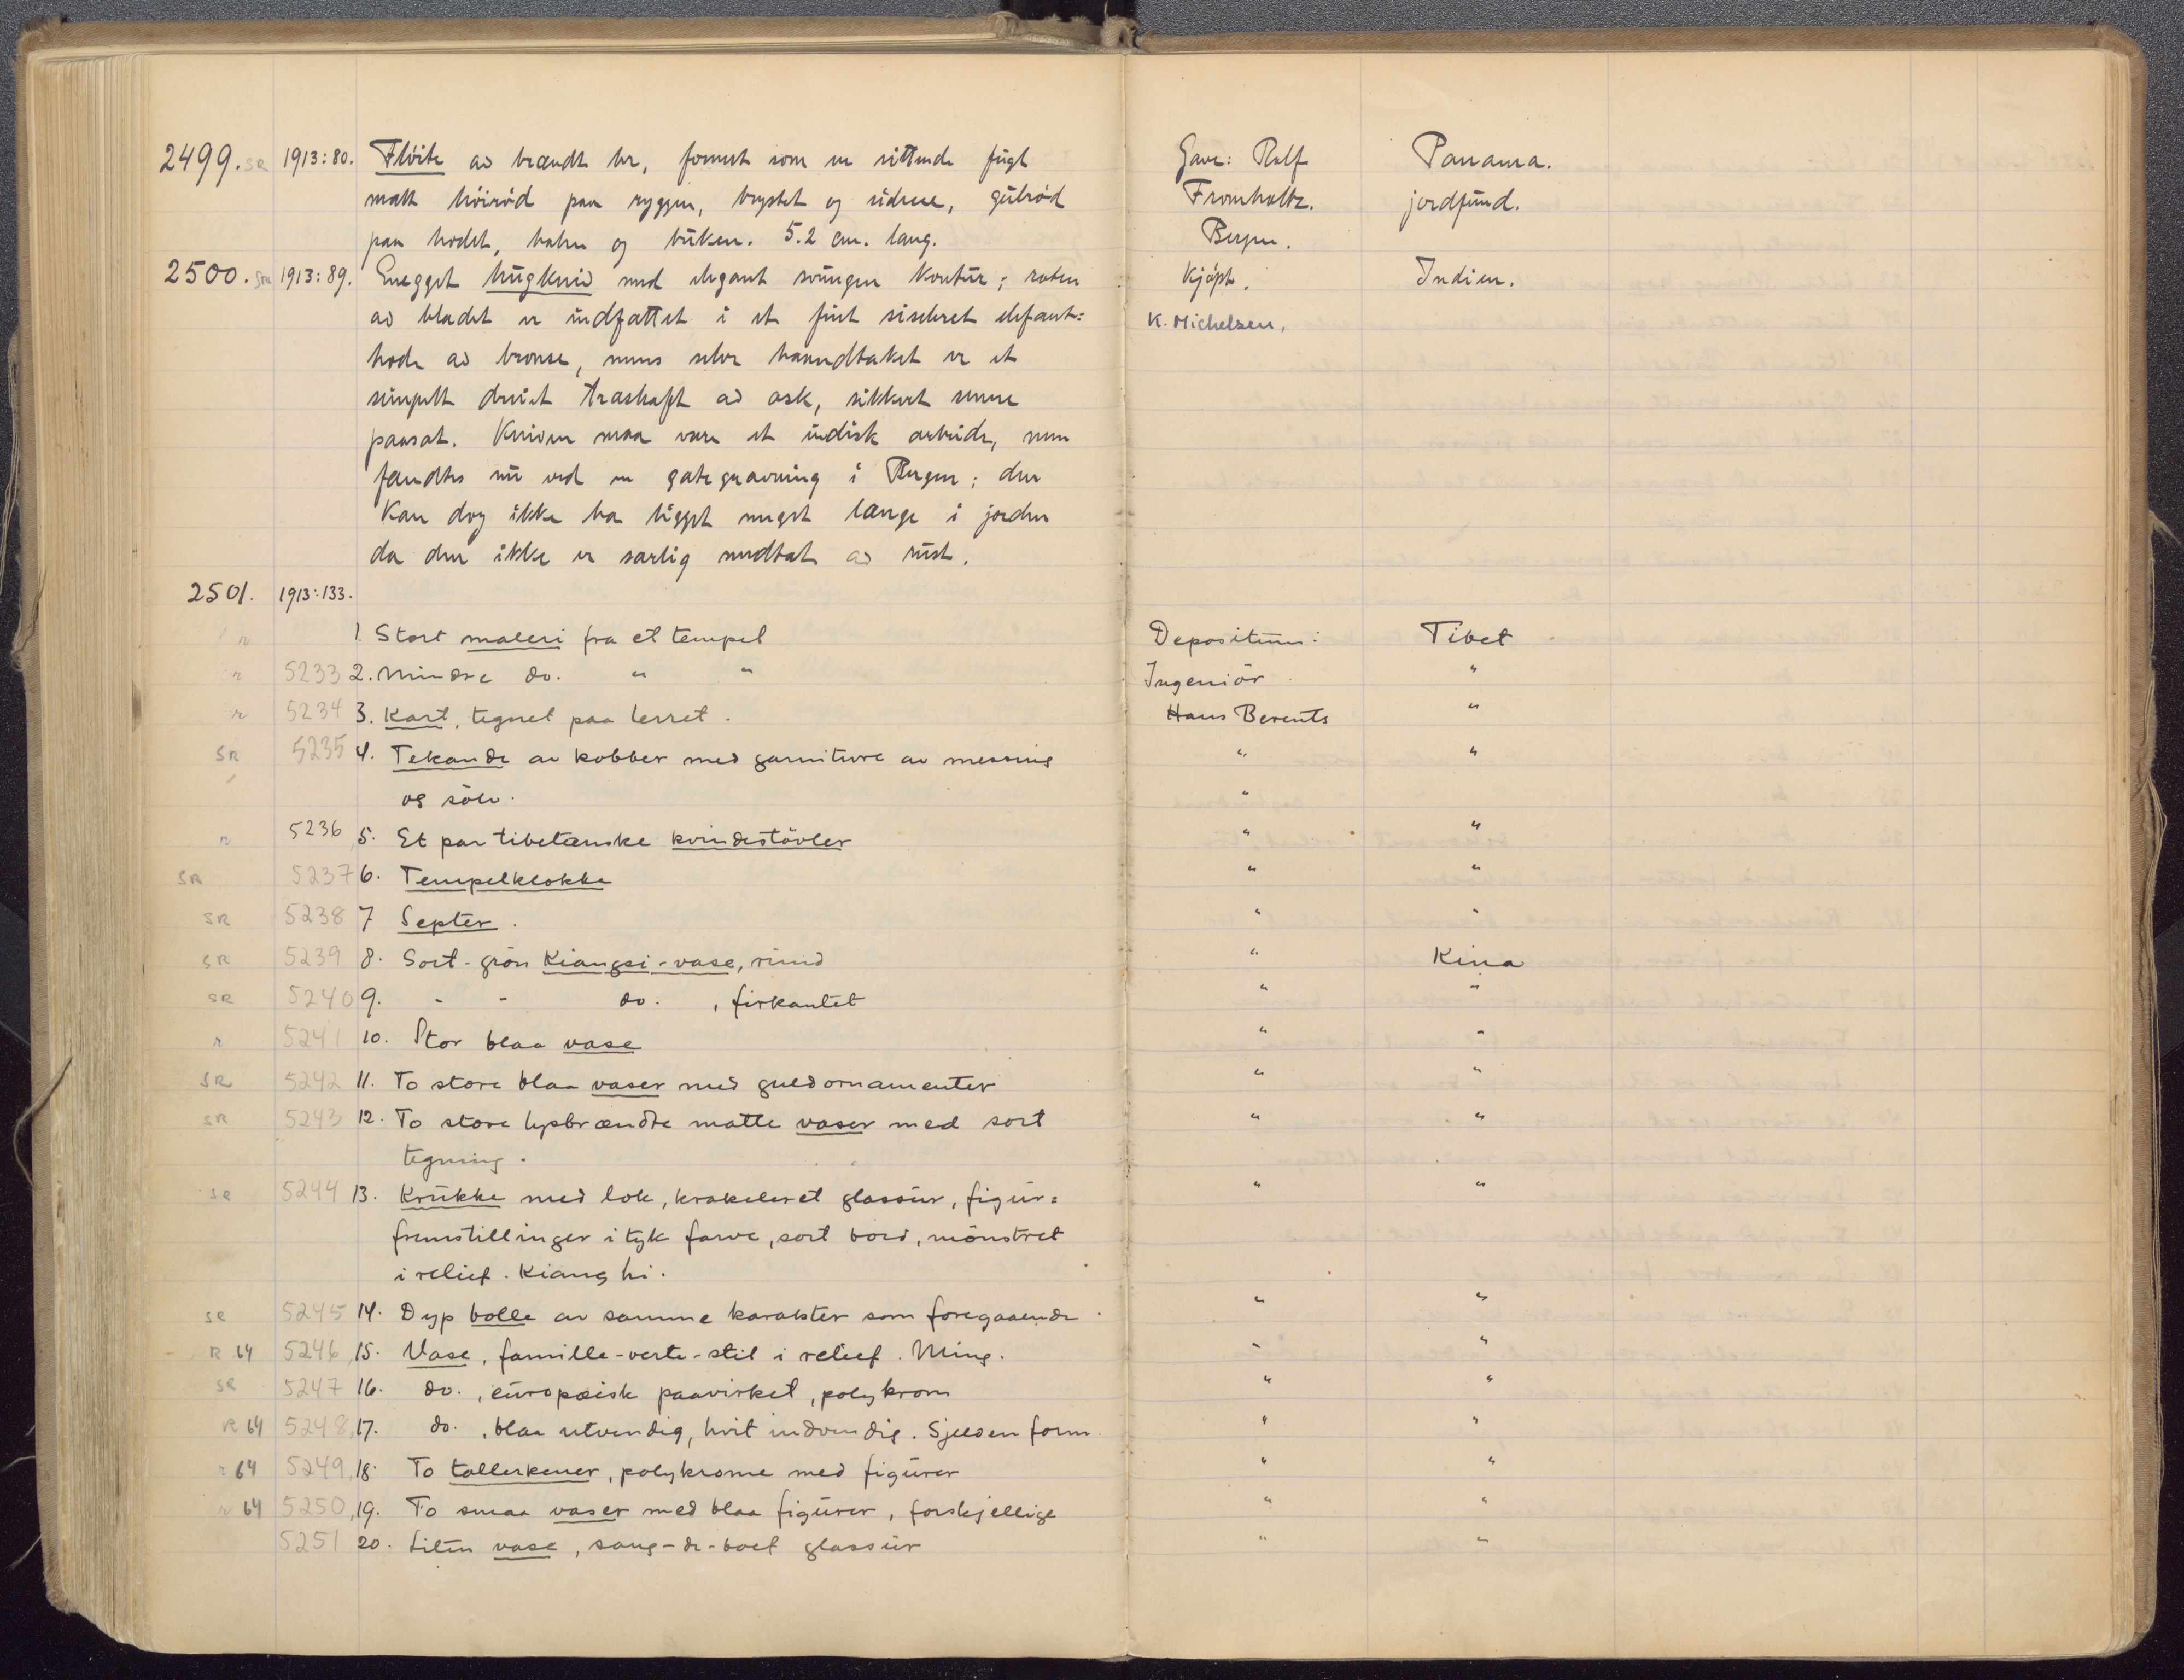 2499. SR 1913:80. Fløite av brændt ler, formet som en sittende fugl Gave: Rolf Panama.
matt høirød paa ryggen, brystet og sidene, gulrød Fromholtz. jordfund.
paa hodet, halsen og buken. 5.2 cm. lang. Bergen.
2500. SR 1913:89. Enegget hugkniv med elegant svungen kontur; roten Kjøpt. Indien.
av bladet er indfattet i et fint siseleret elefant= K. Michelsen.
hode av bronse, mens selve haandtaket er et
simpelt dreiet træskaft av ask, sikkert senere
paasat. Kniven maa være et indisk arbeide, men
fandtes nu ved en gategravning i Bergen; den
kan dog ikke ha ligget meget længe i jorden
da den ikke er særlig medtat av rust.
2501. 1913:133.
r 1. Stort maleri fra et tempel Depositum: Tibet
r 5233 2. Mindre do. " " Ingeniör "
r 5234 3. Kart, tegnet paa lerret. Hans Berents "
SR 5235 4. Tekande av kobber med garniture av messing " "
og sölv. "
r 5236 5. Et par tibetanske kvindestövler " "
SR 5237 6. Tempelklokke " "
SR 5238 7 Septer. " "
SR 5239 8. Sort-grön Kiangsi-vase, rund " Kina
SR 5240 9. - - do. , firkantet " "
r 5241 10. Stor blaa vase " "
SR 5242 11. To store blaa vaser med guldornamenter " "
SR 5243 12. To store lysbrændte matte vaser med sort " "
tegning.
SR 5244 13. Krukke med lok, krakeleret glassur, figur= " "
fremstillinger i tyk farve, sort bord, mönstret
i relief. Kiang hi.
SR 5245 14. Dyp bolle av samme karakter som foregaaende. " "
R 64 5246 15. Vase, famille-verte-stil i relief. Ming. " "
SR 5247 16. do., europæisk paavirket, polykrom " "
R 64 5248 17. do., blaa utvendig, hvit indvendig. Sjelden form. " "
r 64 5249 18. To tallerkener, polykrome med figurer " "
r 64 5250 19. To smaa vaser med blaa figurer, forskjellige " "
5251 20. Liten vase, sang-de-boef glassur " "